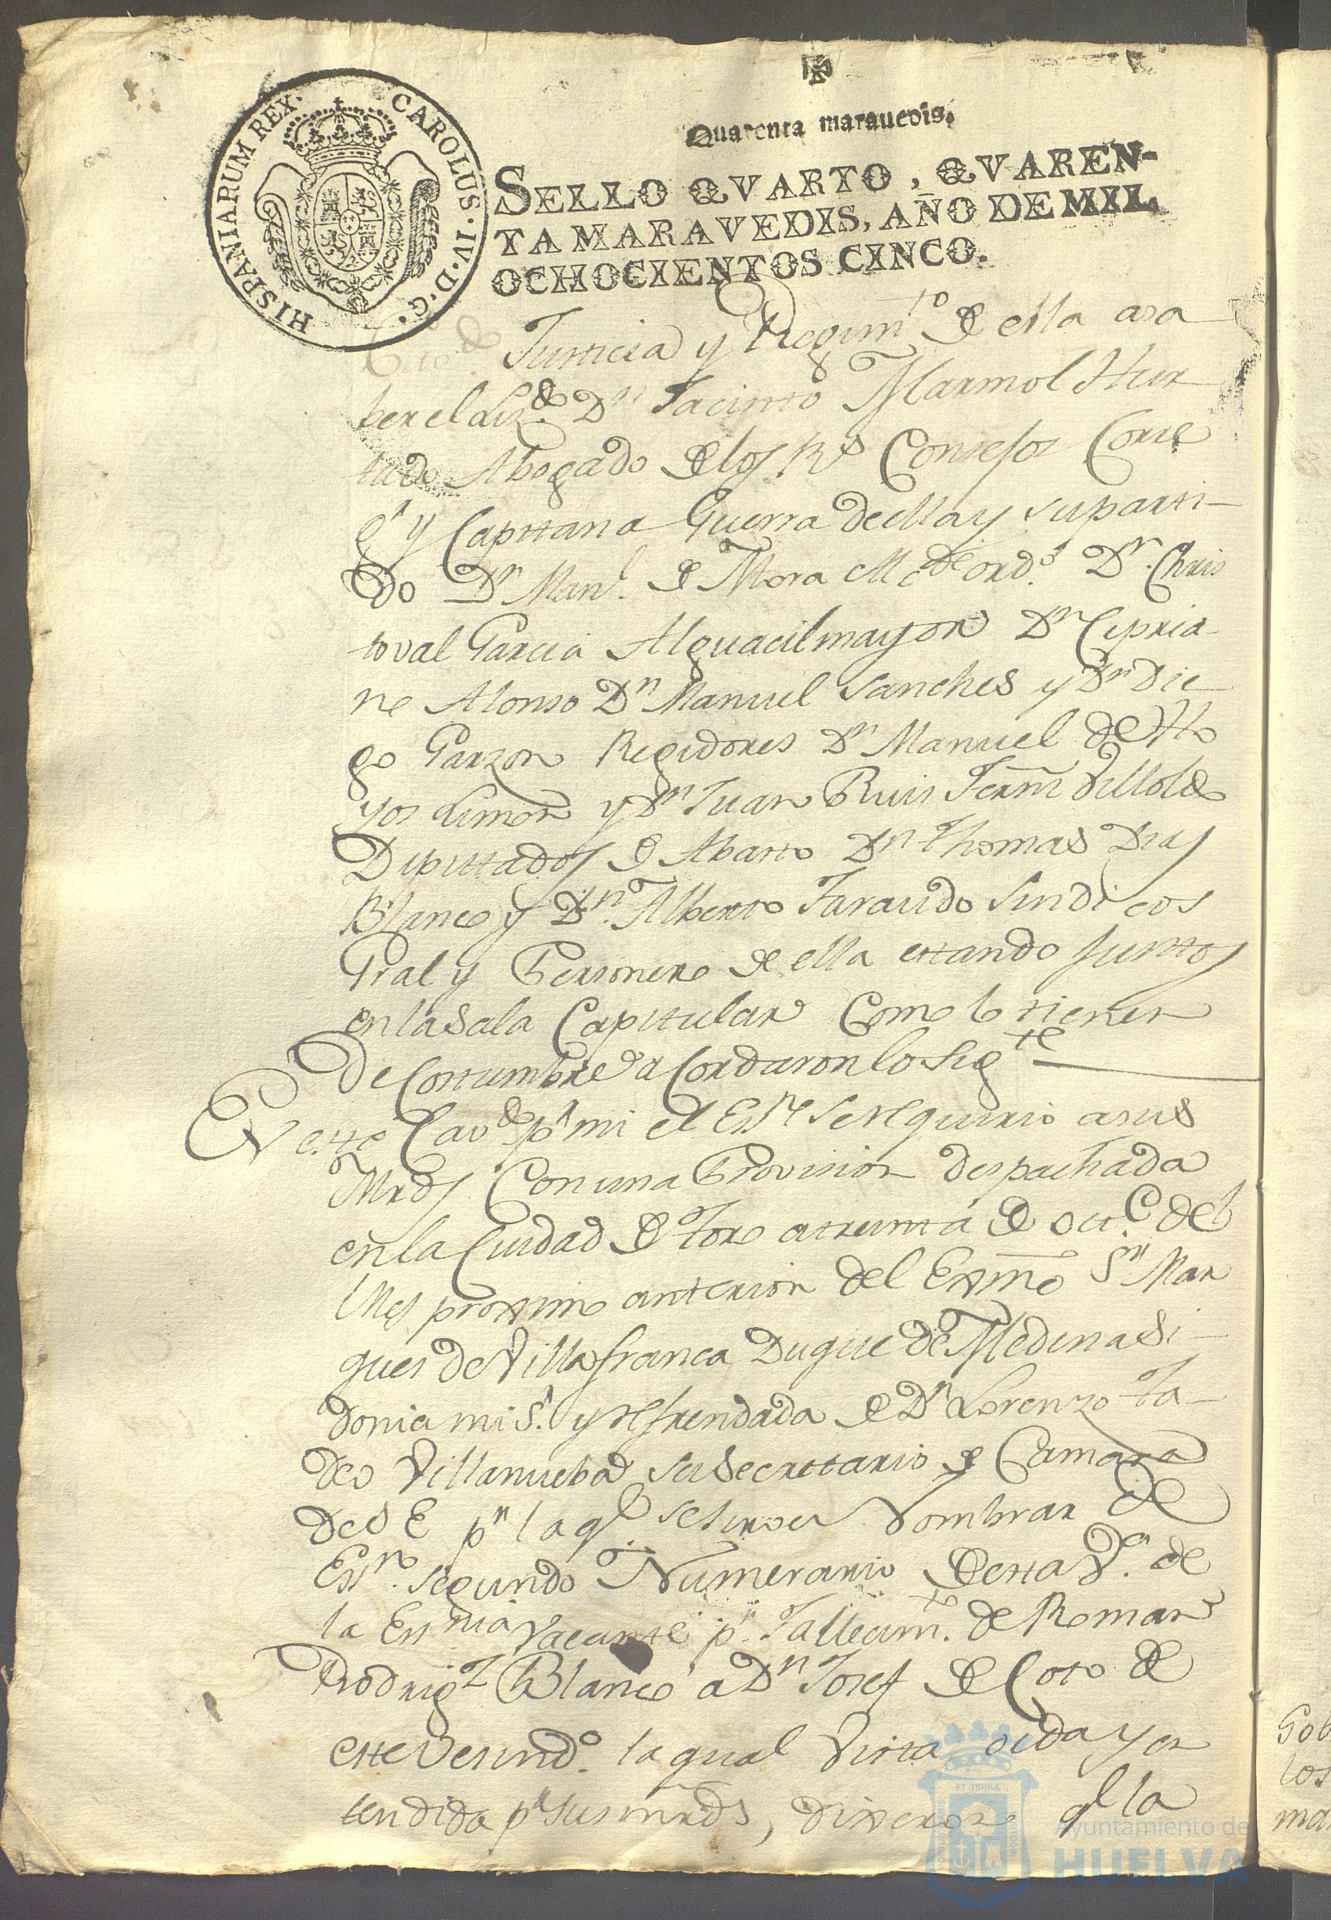 Quarenta maravedis.
SELLO QVARTO, QVAREN-
TA MARAVEDIS, AÑO DE MIL
OCHOCIENTOS CINCO.
HISPANIARUM REX. CAROLUS·IV·D·G·
Justicia y Regim.to de ella asa
ber el Liz.do Dn Jacinto Marmol Hur
tado Abogado de los Rs Consejos Corre
g.r y Capitana Guerra de ella y su parti-
do Dn Man.l de Mora Alc.de ord.o Dn. Chris
toval Garcia Alguacil mayor Dn Cipria-
no Alonso Dn Manuel Sanches y Dn Die
go Garzon Regidores Dn Manuel de Ho
yos Limon y Dn Juan Ruis
Diputados de Abasto Dn Thomas Dias
Blanco y Dn. Alberto Faraudo Sindicos
Gral y Personero de ella estando Juntos
en la Sala Capitular Como lo tienen
de Costumbre a Cordaron lo Sig.te
En este Cav.do p.r mi el Ess.no se requirio a sus
Mrds Con una Provision despachada
en la Ciudad de Toro a treinta de Oct.e del
Mes proximo anterior del Exmo Sr. Mar
ques de Villafranca Duque de Medina Si-
donia mi S.r y refrendada de Dn Lorenzo Ta-
deo Villanueba su Secrettario de Camara
de S E pr la ql se sirve Nombrar de
Ess.no segundo Numerario de esta V.a de
la Ess.nia vacante pr Fallecim.to de Roman
Rodrig.z Blanco a Dn Josef de Coto de
este Vesind.o la qual Vista oida y en
tendida pr sus mrds, dixeron q.e la
Gob
los
ma
Ayuntamiento de
HUELVA